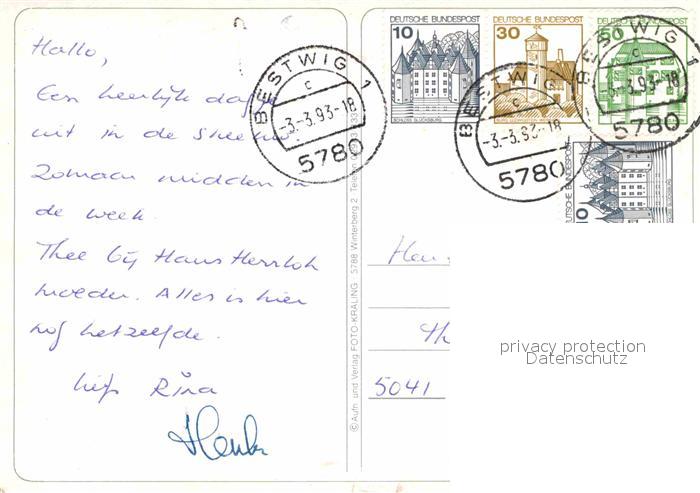 Hallo,
Een heerlijk dagje
uit in de sneeuw
Zomaar midden in
de week.
Thee bij Hans Herrloh
moeder. Alles is hier
nog hetzelfde.
liefs Rina
Henk
DEUTSCHE BUNDESPOST
10
SCHLOSS GLÜCKSBURG
DEUTSCHE BUNDESPOST
30
DEUTSCHE BUNDESPOST
50
DEUTSCHE BUNDESPOST
10
BESTWIG 1
c
-3.-3.93-18
5780
BESTWIG
c
-3.-3.93-18
5780
BESTWIG 1
c
-3.-3.93-18
5780
© Aufn. und Verlag FOTO-KRALING 5788 Winterberg 2 Telefon
5041
privacy protection
Datenschutz